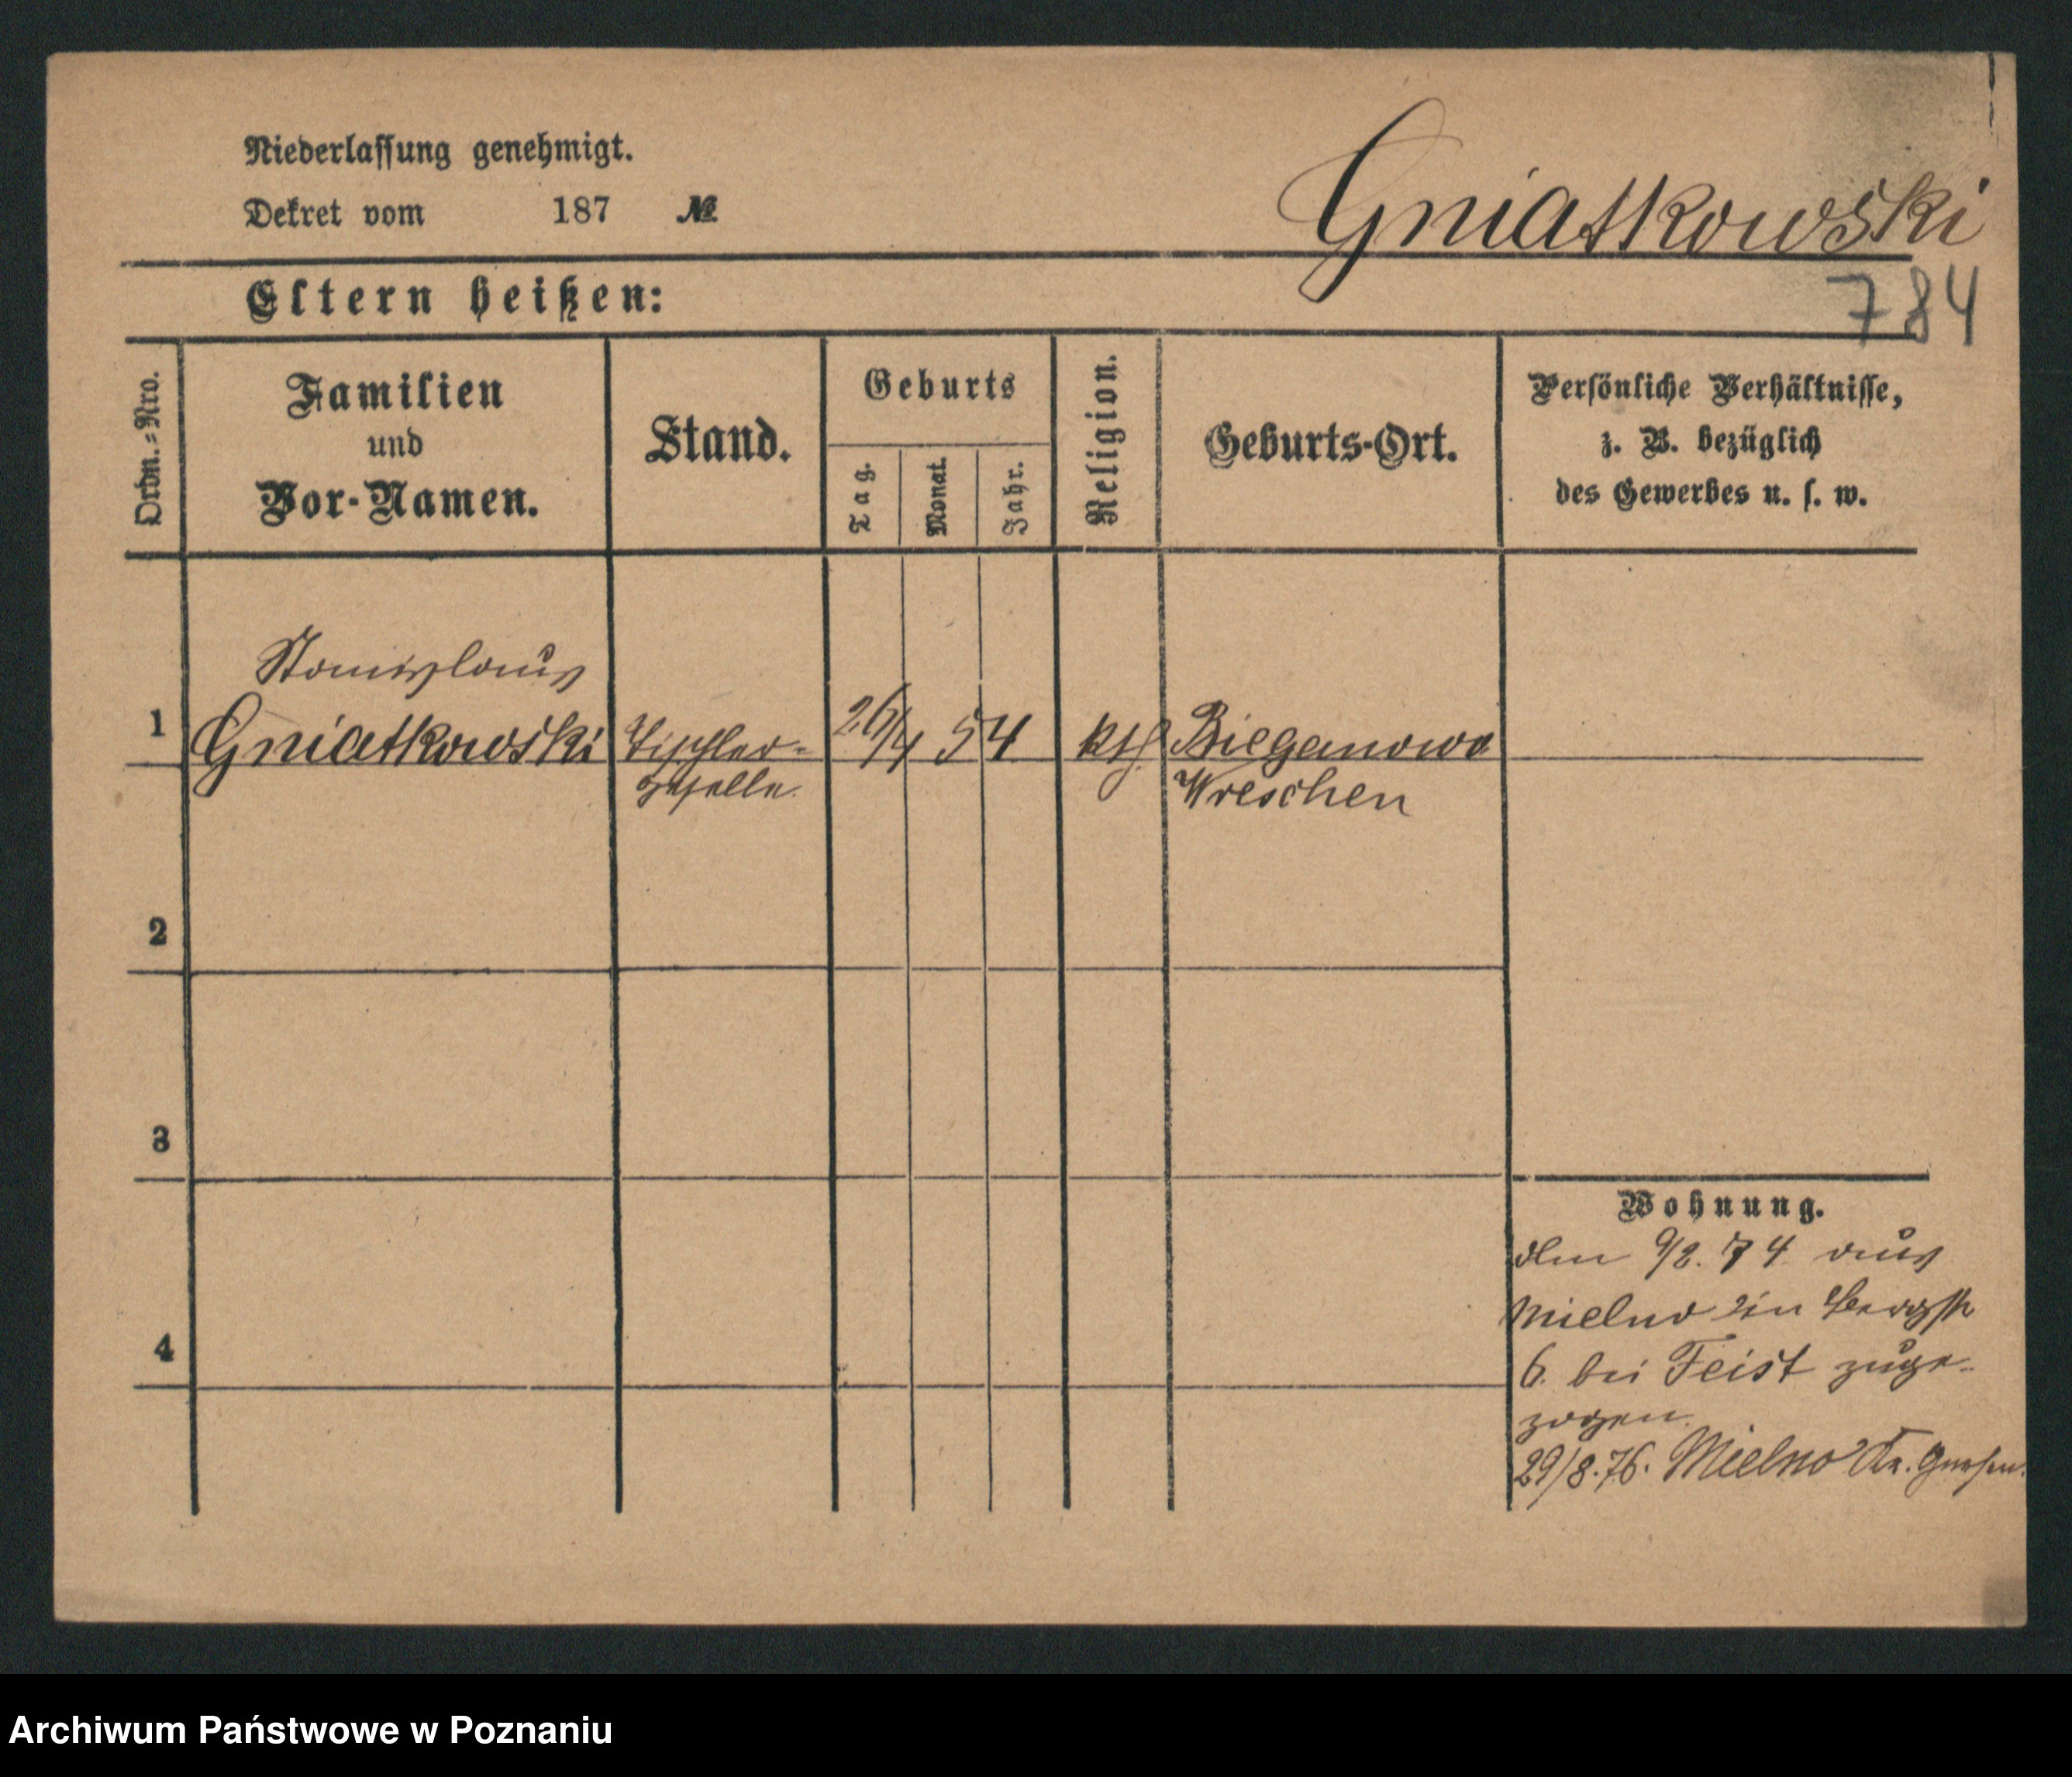 Niederlassung genehmigt.
Dekret vom 187 №
Gniatkowski
Eltern heißen:
784
Ordn.=Nro.
Familien
und
Vor-Namen.
Stand.
Geburts
Tag.
Monat.
Jahr.
Religion.
Geburts-Ort.
Persönliche Verhältnisse,
z. B. bezüglich
des Gewerbes u. s. w.
Stanislaus
1 Gniatkowski Tischler= 26/4 54 kth Bieganowo
geselle. Wreschen
2
3
4
Wohnung.
den 9/2. 74 aus
Mielno in Bergstr
6. bei Feist zuge-
zogen.
29/8.76. Mielno Kr. Gnesen.
Archiwum Państwowe w Poznaniu